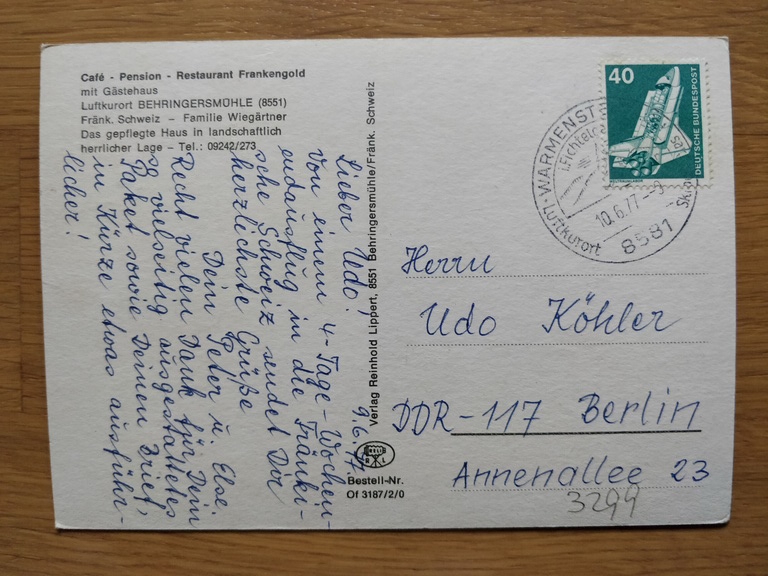 Café - Pension - Restaurant Frankengold
mit Gästehaus
Luftkurort BEHRINGERSMÜHLE (8551)
Fränk. Schweiz - Familie Wiegärtner
Das gepflegte Haus in landschaftlich
herrlicher Lage - Tel.: 09242/273
9.6.77.
Lieber Udo!
Von einem 4-Tage-Wochen-
endausflug in die Fränki-
sche Schweiz sendet Dir
herzlichste Grüße
Dein Peter u. Else.
Recht vielen Dank für Dein
so vielseitig ausgestaltetes
Paket sowie Deinen Brief,
in Kürze etwas ausführ-
licher!
Verlag Reinhold Lippert, 8551 Behringersmühle/Fränk. Schweiz
Bestell-Nr.
Of 3187/2/0
40
DEUTSCHE BUNDESPOST
WARMENST
i.Fichtel
10.6.77
Luftkurort
8581
Herrn
Udo Köhler
DDR-117 Berlin
Annenallee 23
3299